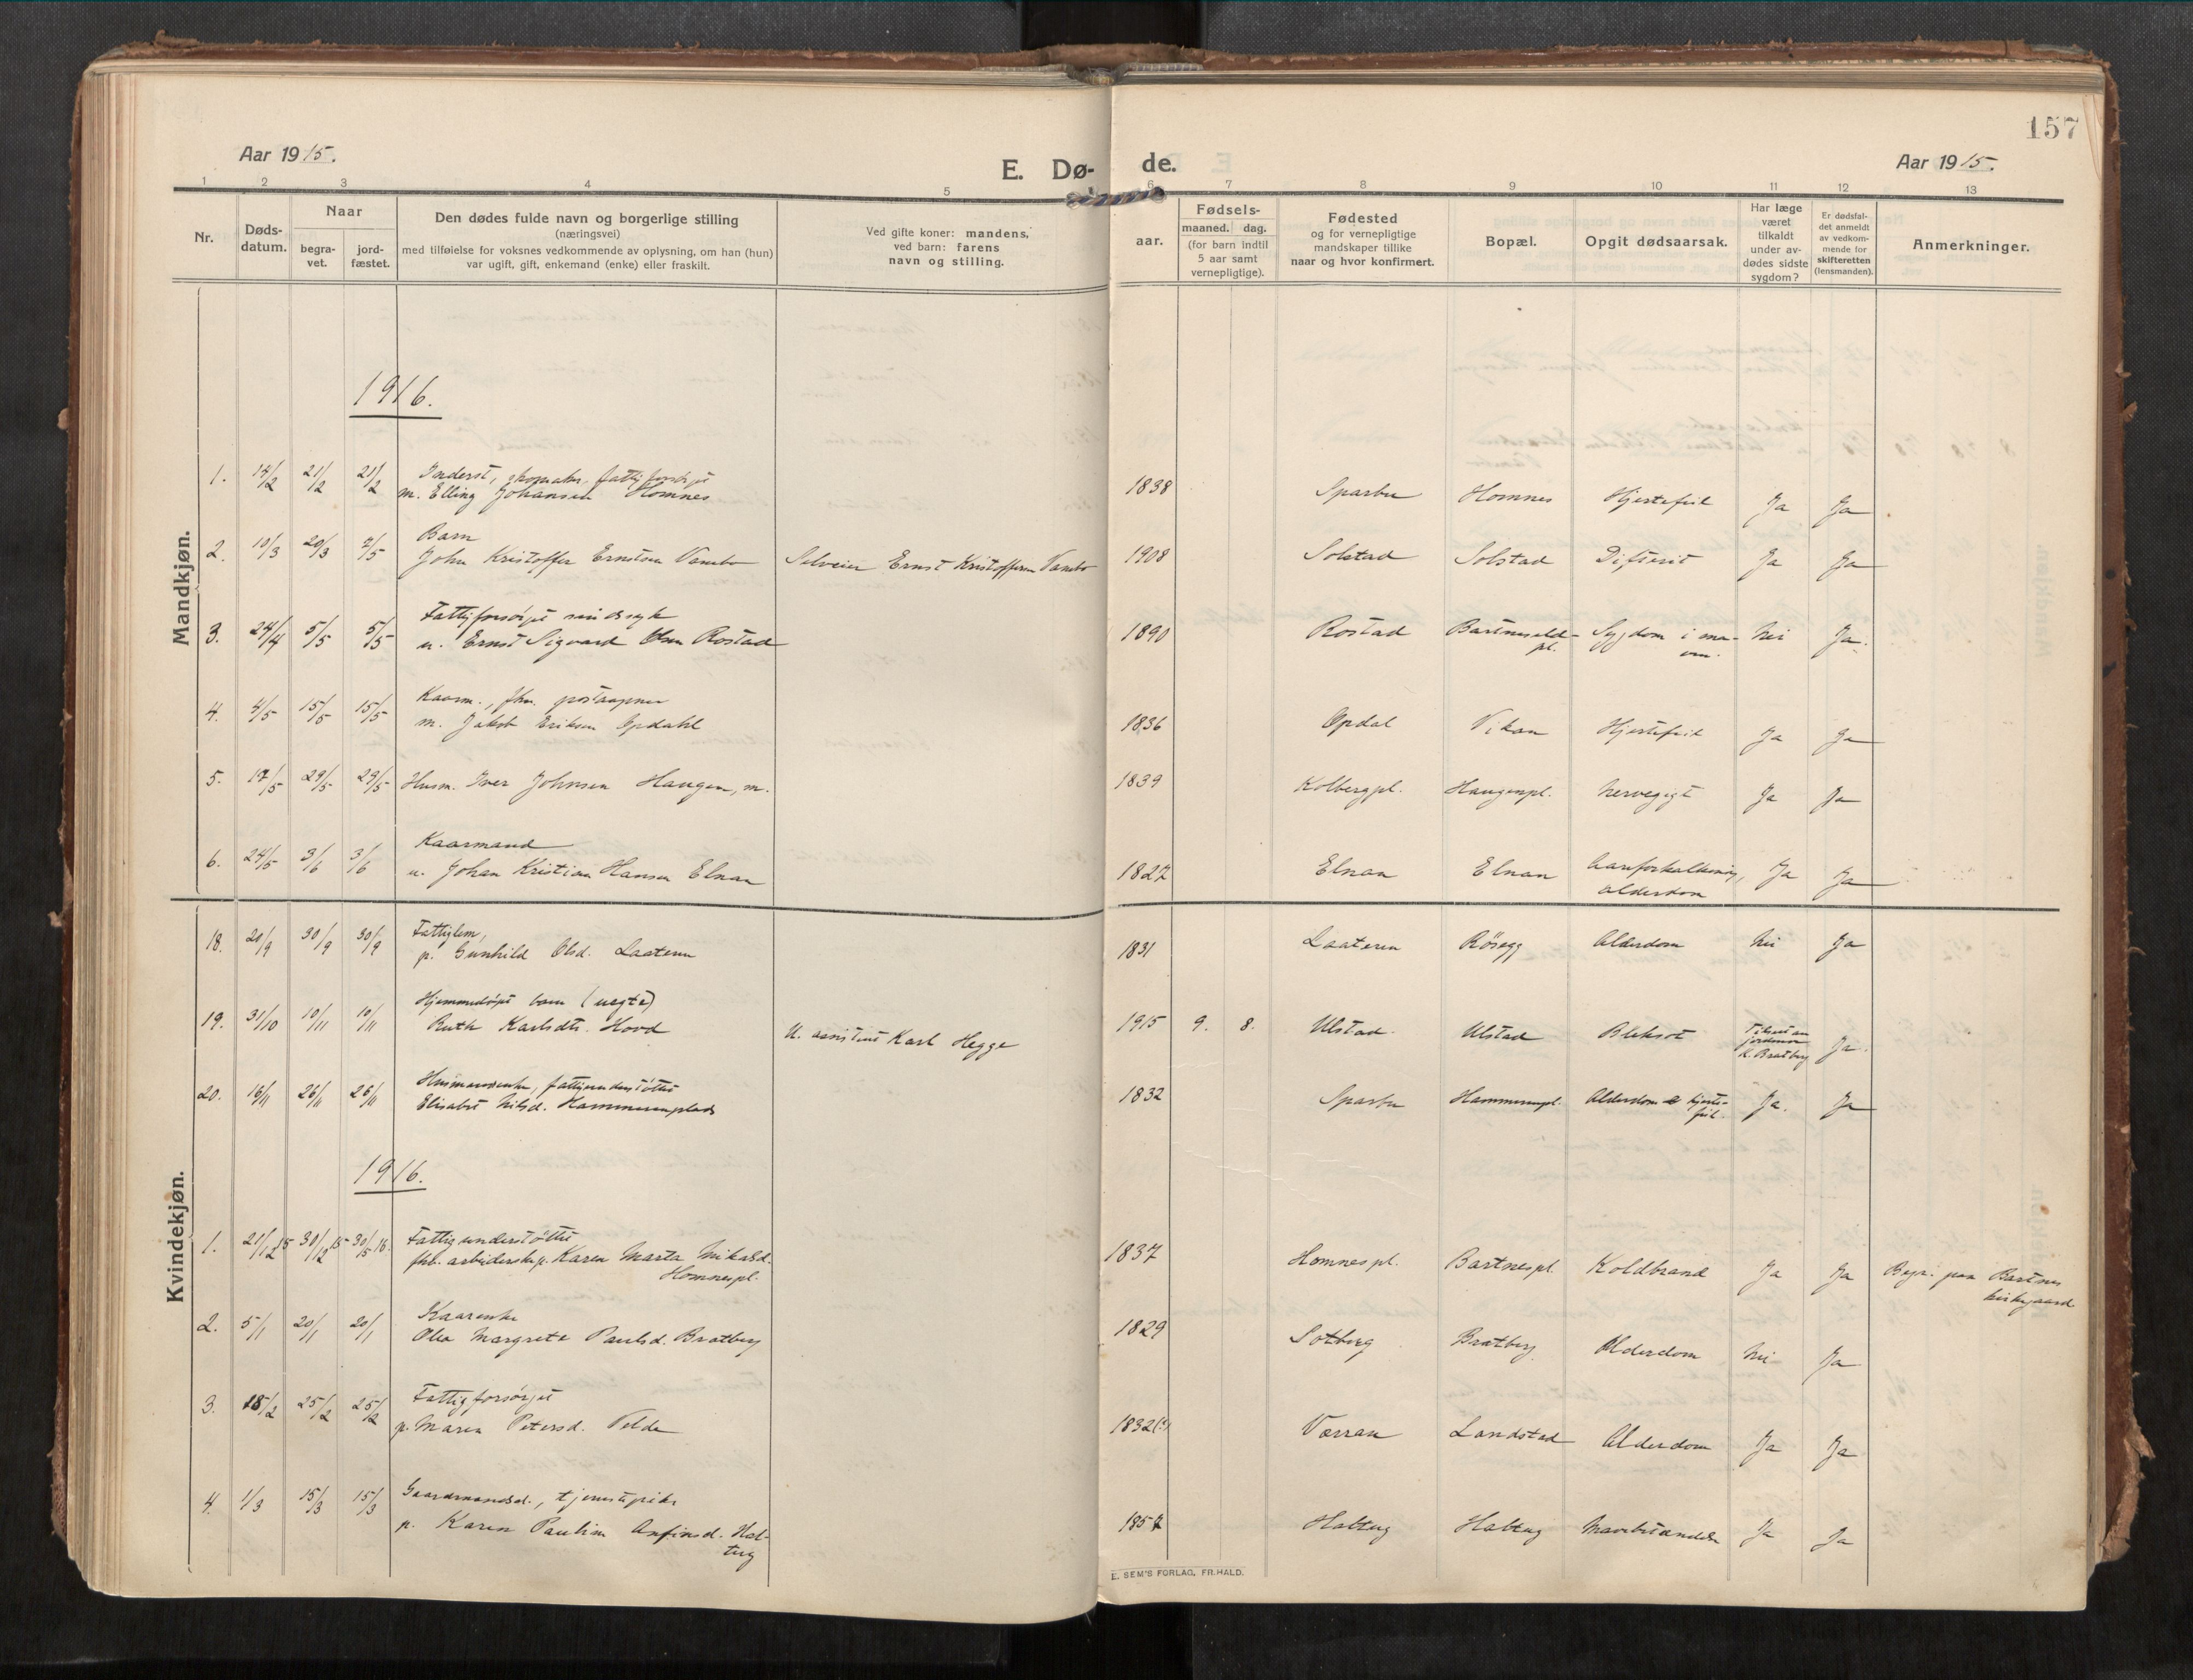 157
Aar 1915.
E. Dø-
de.
Aar 1915.
1 2 3 4 5 6 7 8 9 10 11 12 13
Nr.
Døds-
datum.
Naar
begra-
vet.
jord-
fæstet.
Den dødes fulde navn og borgerlige stilling
(næringsvei)
med tilføielse for voksnes vedkommende av oplysning, om han (hun)
var ugift, gift, enkemand (enke) eller fraskilt.
Ved gifte koner: mandens,
ved barn: farens
navn og stilling.
Fødsels-
aar.
maaned. dag.
(for barn indtil
5 aar samt
vernepligtige).
Fødested
og for vernepligtige
mandskaper tillike
naar og hvor konfirmert.
Bopæl.
Opgit dødsaarsak.
Har læge
været
tilkaldt
under av-
dødes sidste
sygdom?
Er dødsfal-
det anmeldt
av vedkom-
mende for
skifteretten
(lensmanden).
Anmerkninger.
Mandkjøn.
1916.
Inderst, skomaker, fattigforsörget
1. 14/2 21/2 21/2 m. Elling Johansen Homnes 1838 Sparbu Homnes Hjertefeil Ja Ja
Barn
2. 10/3 20/3 7/5 John Kristoffer Ernstsen Vambo Selveier Ernst Kristoffersen Vambo 1908 Solstad Solstad Difterit Ja Ja
Fattigforsörget sindssyk
3. 24/4 5/5 5/5 u. Ernst Sigvard Olsen Rostad 1890 Rostad Bartnes pl. Sygdom i ma- Nei Ja.
Kaarm., fhv. postaapner
4. 4/5 15/5 15/5 m. Jakob Eriksen Opdahl 1836 Opdal Vikan Hjertefeil Ja Ja
5. 17/5 29/5 29/5 Husm. Iver Johnsen Haugen, m. 1839 Kolbergpl. Haugenpl. Nervegigt Ja Ja
Kaarmand
6. 24/5 3/6 3/6 u. Johan Kristian Hansen Elnan 1827 Elnan Elnan Aareforkalkning, Ja Ja
alderdom
Kvindekjøn.
Fattiglem,
18. 20/9 30/9 30/9 p. Gunhild Olsd. Laateren 1831 Laateren Rösegg Alderdom Nei Ja
Hjemmedöpt barn (uegte)
19. 31/10 10/11 10/11 Ruth Karlsdtr. Hovd U. assistent Karl Hegge 1915 9. 8. Ulstad Ulstad Bleksot Tilset av
jordmor
K. Bratberg Ja.
Husmandsenke, fattigunderstöttet
20. 16/11 26/11 26/11 Elisabet Nilsd. Hammerenplads 1832 Sparbu Hammerenpl. Alderdom & hjerte-
feil. Ja. Ja
1916.
Fattigunderstöttet
1. 21/12 15 30/12 15 30/5 16. fhv. arbeiderske p. Karen Marta Mikalsd.
Homnespl. 1837 Homnespl. Bartnespl. Koldbrand Ja Ja Begr. paa Bartnes
kirkegaard
Kaarenke
2. 5/1 20/1 20/1 Olea Margrete Paulsd. Bratberg 1829 Solberg Bratberg Alderdom Nei Ja
Fattigforsörget
3. 18/2 25/2 25/2 p. Maren Petersd. Velde 1832(?) Værran Landstad Alderdom Ja Ja
Gaardmandsd., tjenestepike
4. 1/3 15/3 15/3 p. Karen Pauline Anfinsd. Hal-
tug 1857 Haltug Haltug Mavebetændelse Ja Ja
E. SEM'S FORLAG, FR.HALD.